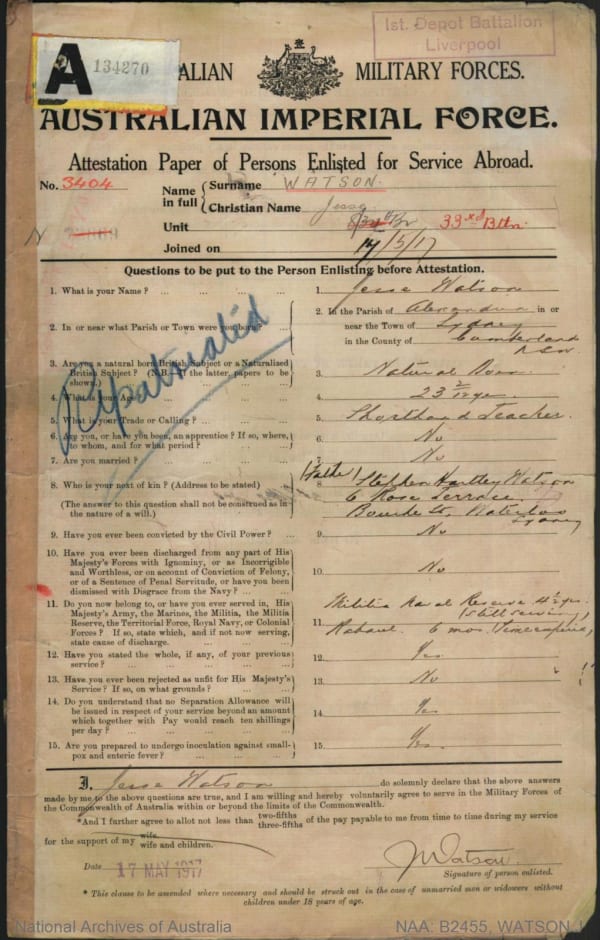 1st. Depot Battalion
Liverpool
A 134270
ALIAN MILITARY FORCES.
AUSTRALIAN IMPERIAL FORCE.
Attestation Paper of Persons Enlisted for Service Abroad.
No. 3404
Name in full { Surname WATSON.
Christian Name Jesse
Unit 33rd Btn.
Joined on 17/5/17
N
Questions to be put to the Person Enlisting before Attestation.
1. What is your Name? ... ... ... ... 1. Jesse Watson
2. In or near what Parish or Town were you born? ... 2. In the Parish of Alexandria in or
near the Town of Sydney
in the County of Cumberland
NSW
3. Are you a natural born British Subject or a Naturalised
British Subject? (N.B.—If the latter, papers to be
shown.) 3. Natural Born
4. What is your Age? 4. 23 2/12 yrs
5. What is your Trade or Calling? ... 5. Shorthand Teacher.
6. Are you, or have you been, an apprentice? If so, where,
to whom, and for what period? ... 6. No
7. Are you married? ... 7. No
8. Who is your next of kin? (Address to be stated) ... 8. (Father) Stephen Hartley Watson
6 Rose Terrace.
(The answer to this question shall not be construed as in
the nature of a will.) Bourke St, Waterloo
Sydney
9. Have you ever been convicted by the Civil Power? ... 9. No
10. Have you ever been discharged from any part of His
Majesty's Forces with Ignominy, or as Incorrigible
and Worthless, or on account of Conviction of Felony,
or of a Sentence of Penal Servitude, or have you been
dismissed with Disgrace from the Navy? ... 10. No
11. Do you now belong to, or have you ever served in, His
Majesty's Army, the Marines, the Militia, the Militia
Reserve, the Territorial Force, Royal Navy, or Colonial
Forces? If so, state which, and if not now serving,
state cause of discharge. 11. Militia Naval Reserve 4½ yrs.
(still serving)
Rabaul. 6 mos. (Time expired)
12. Have you stated the whole, if any, of your previous
service? ... 12. Yes
13. Have you ever been rejected as unfit for His Majesty's
Service? If so, on what grounds? ... 13. No
14. Do you understand that no Separation Allowance will
be issued in respect of your service beyond an amount
which together with Pay would reach ten shillings
per day? ... 14. Yes
15. Are you prepared to undergo inoculation against small-
pox and enteric fever? ... 15. Yes.
Repatriated
I, Jesse Watson do solemnly declare that the above answers
made by me to the above questions are true, and I am willing and hereby voluntarily agree to serve in the Military Forces of
the Commonwealth of Australia within or beyond the limits of the Commonwealth.
*And I further agree to allot not less than two-fifths three-fifths of the pay payable to me from time to time during my service
for the support of my wife. wife and children.
Date 17 MAY 1917
J Watson.
Signature of person enlisted.
* This clause to be amended where necessary and should be struck out in the case of unmarried men or widowers without
children under 18 years of age.
National Archives of Australia NAA: B2455, WATSON J